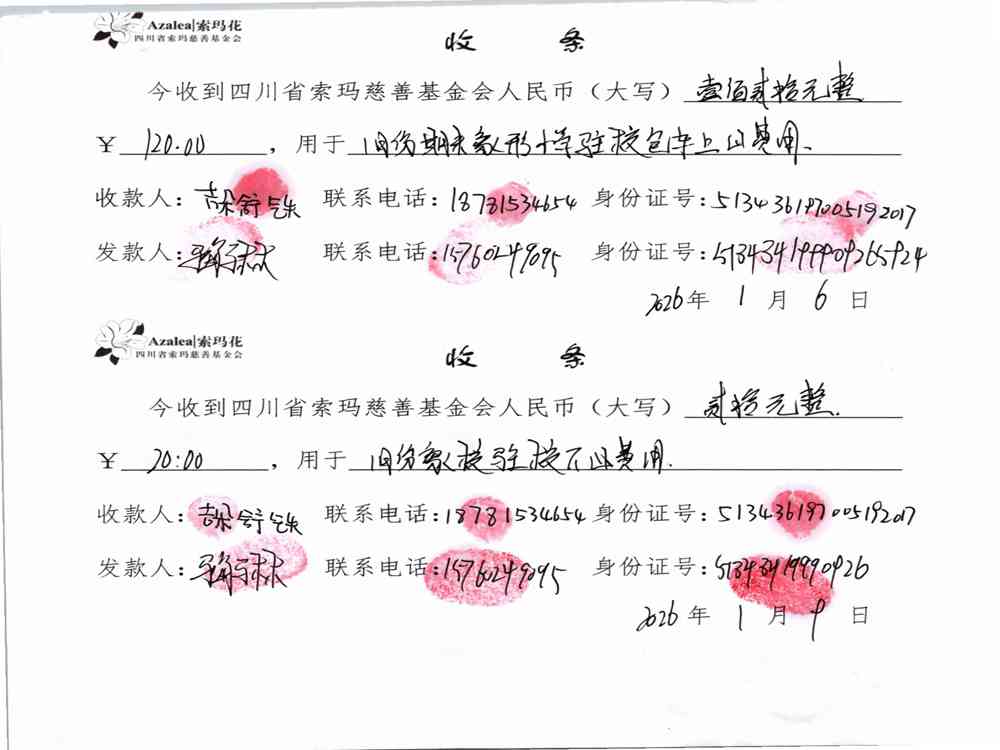 Azalea|索玛花
四川省索玛慈善基金会
收 条
今收到四川省索玛慈善基金会人民币（大写）壹佰贰拾元整
￥ 120.00 ，用于 1月份期末象形小学驻校包车上山费用.
收款人： 舒 联系电话：18781534654 身份证号：513436197005192017
发款人： 联系电话：15760249095 身份证号：513434199909265924
2026年 1 月 6 日
Azalea|索玛花
四川省索玛慈善基金会
收 条
今收到四川省索玛慈善基金会人民币（大写）贰拾元整.
￥ 20:00 ，用于 1月份 校驻校下山费用.
收款人： 舒 联系电话：18781534654 身份证号：513436197005192017
发款人： 联系电话：15760249095 身份证号：51343419990926
2026年 1 月 9 日